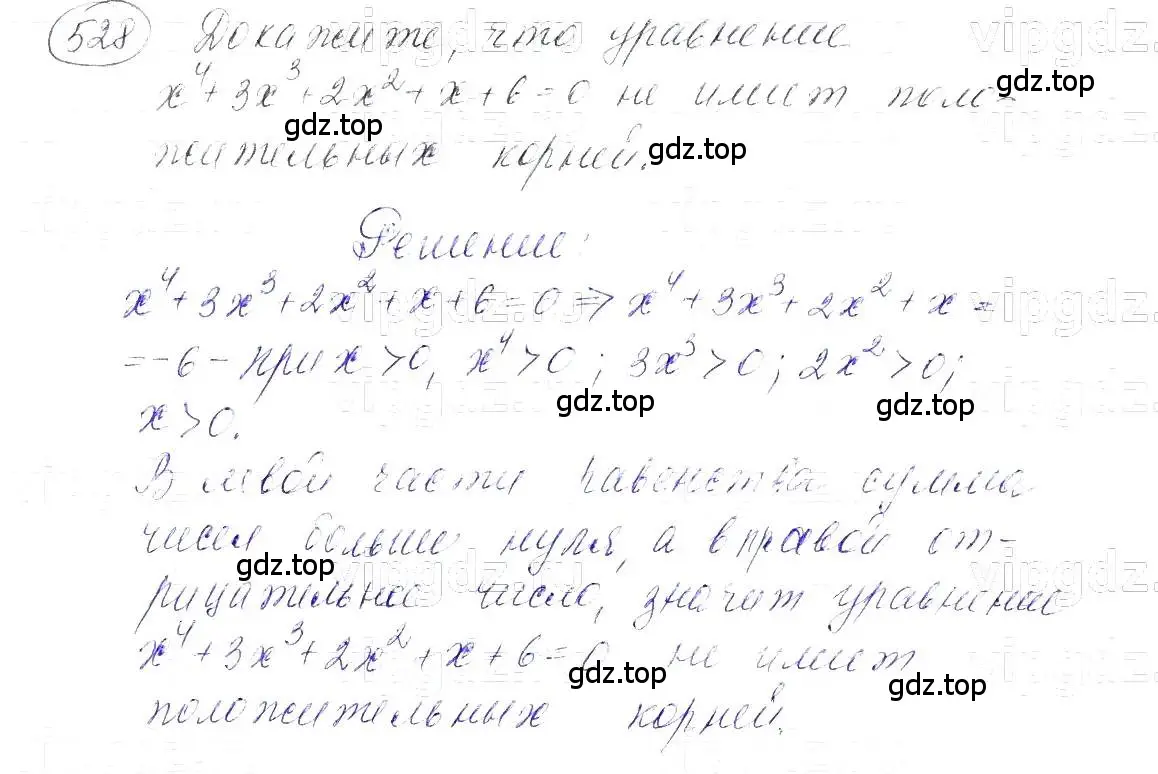 528 Докажите, что уравнение
x⁴+3x³+2x²+x+6=0 не имеет поло-
жительных корней.
Решение:
x⁴+3x³+2x²+x+6=0 => x⁴+3x³+2x²+x=
=-6 - при x>0, x⁴>0; 3x³>0; 2x²>0;
x>0.
В левой части равенства сумма
чисел больше нуля, а в правой от-
рицательное число, значит уравнение
x⁴+3x³+2x²+x+6=0 не имеет
положительных корней.
gdz.top
gdz.top
gdz.top
gdz.top
gdz.top
gdz.top
gdz.top
gdz.top